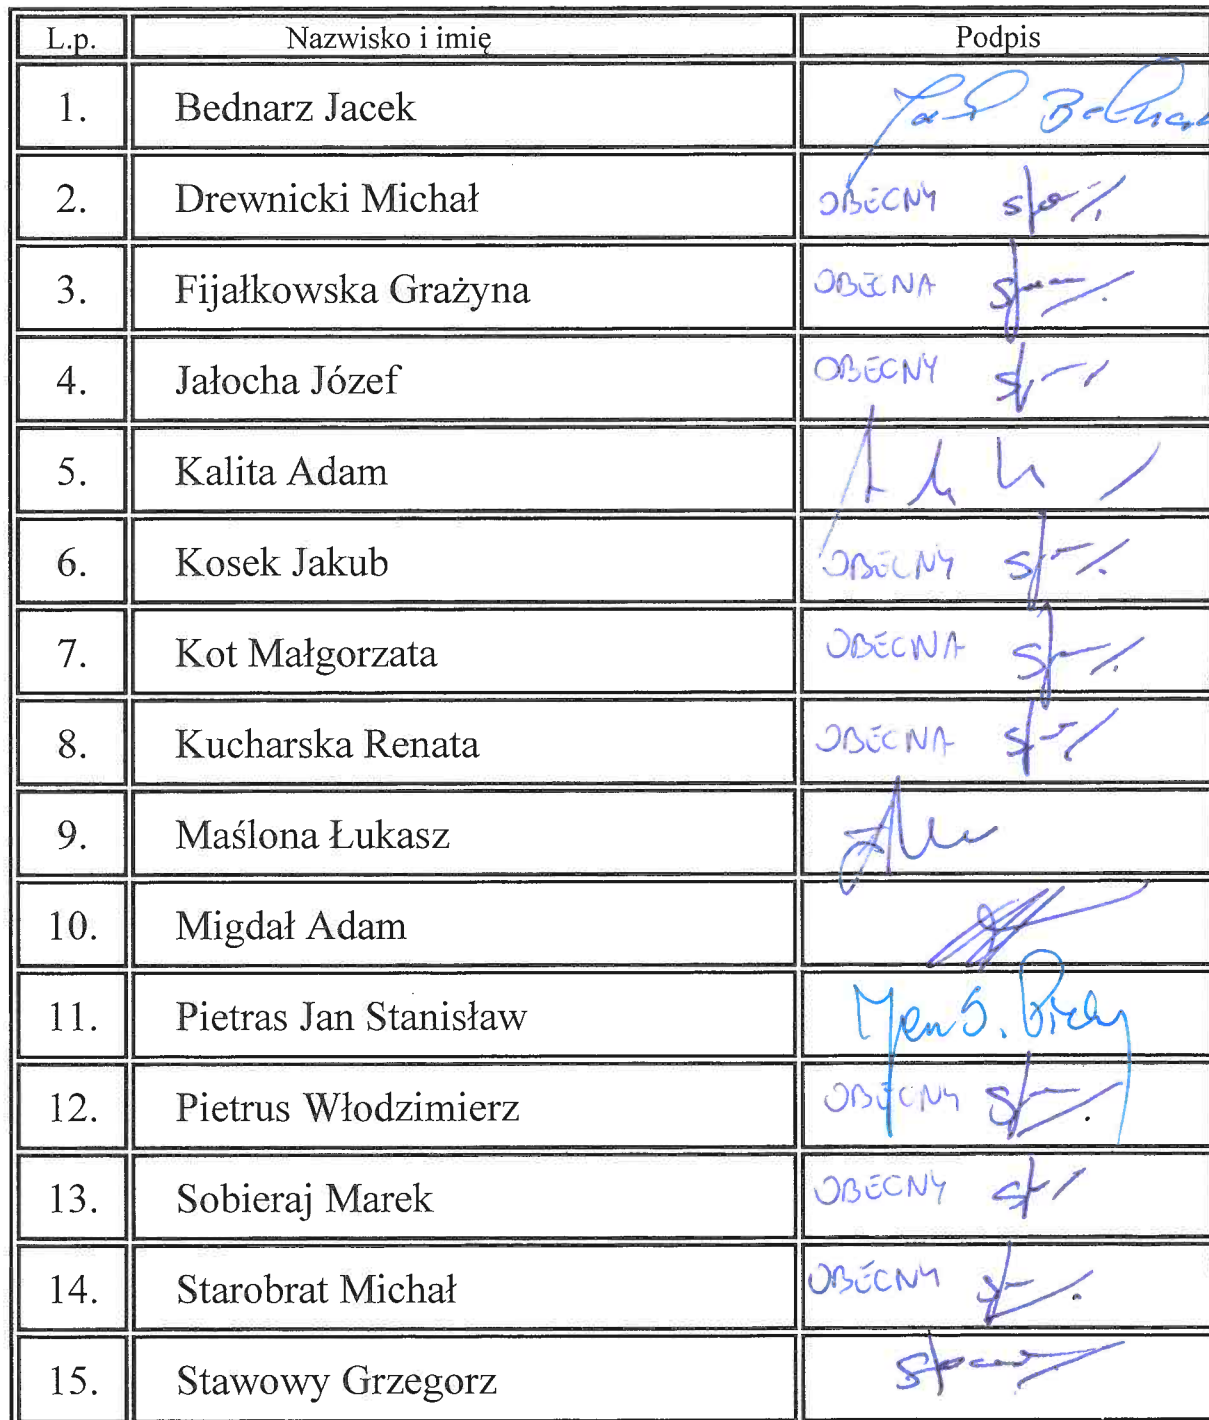 L.p. Nazwisko i imię Podpis
1. Bednarz Jacek
2. Drewnicki Michał OBECNY
3. Fijałkowska Grażyna OBECNA
4. Jałocha Józef OBECNY
5. Kalita Adam
6. Kosek Jakub OBECNY
7. Kot Małgorzata OBECNA
8. Kucharska Renata OBECNA
9. Maślona Łukasz
10. Migdał Adam
11. Pietras Jan Stanisław
12. Pietrus Włodzimierz OBECNY
13. Sobieraj Marek OBECNY
14. Starobrat Michał OBECNY
15. Stawowy Grzegorz